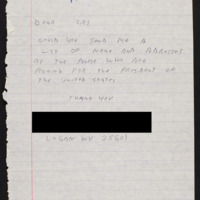 DEAR SIRS
COULD YOU SEND ME A
LIST OF NAME AND ADDRESSES
OF THE PEOPLE WHO ARE
RUNNING FOR THE PRESIDENT OF
THE UNITED STATES
THANK YOU
LOGAN WV 25601